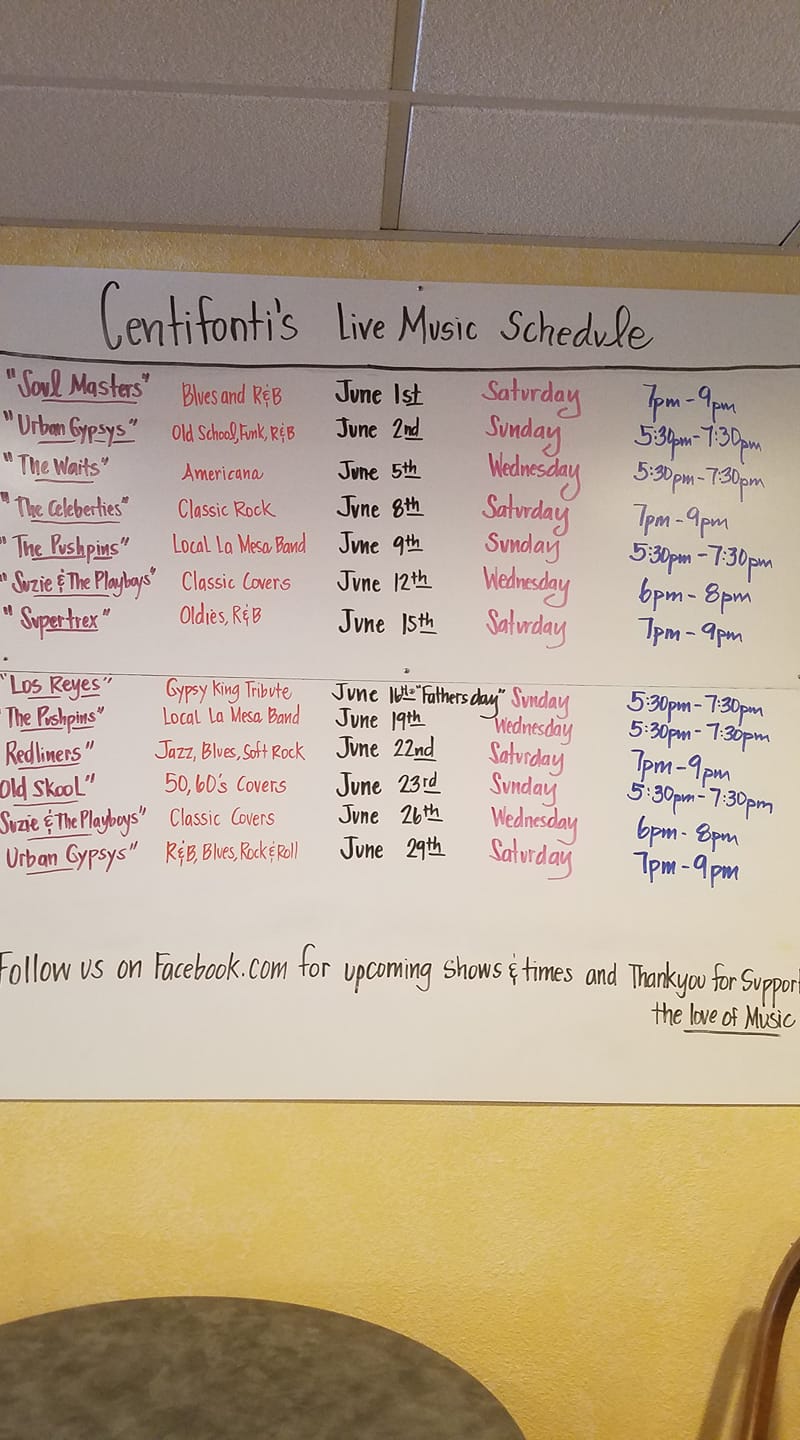 Centifonti's Live Music Schedule
"Soul Masters" Blues and R&B June 1st Saturday 7pm-9pm
"Urban Gypsys" Old School, Funk, R&B June 2nd Sunday 5:30pm-7:30pm
"The Waits" Americana June 5th Wednesday 5:30pm-7:30pm
"The Celeberties" Classic Rock June 8th Saturday 7pm-9pm
"The Pushpins" Local La Mesa Band June 9th Sunday 5:30pm-7:30pm
"Suzie & The Playboys" Classic Covers June 12th Wednesday 6pm-8pm
"Supertrex" Oldies, R&B June 15th Saturday 7pm-9pm
"Los Reyes" Gypsy King Tribute June 16th "Fathers day" Sunday 5:30pm-7:30pm
The Pushpins" Local La Mesa Band June 19th Wednesday 5:30pm-7:30pm
Redliners" Jazz, Blues, Soft Rock June 22nd Saturday 7pm-9pm
Old Skool" 50,60's Covers June 23rd Sunday 5:30pm-7:30pm
Suzie & The Playboys" Classic Covers June 26th Wednesday 6pm-8pm
Urban Gypsys" R&B, Blues, Rock & Roll June 29th Saturday 7pm-9pm
Follow us on Facebook.com for upcoming shows & times and Thankyou for Support
the love of Music